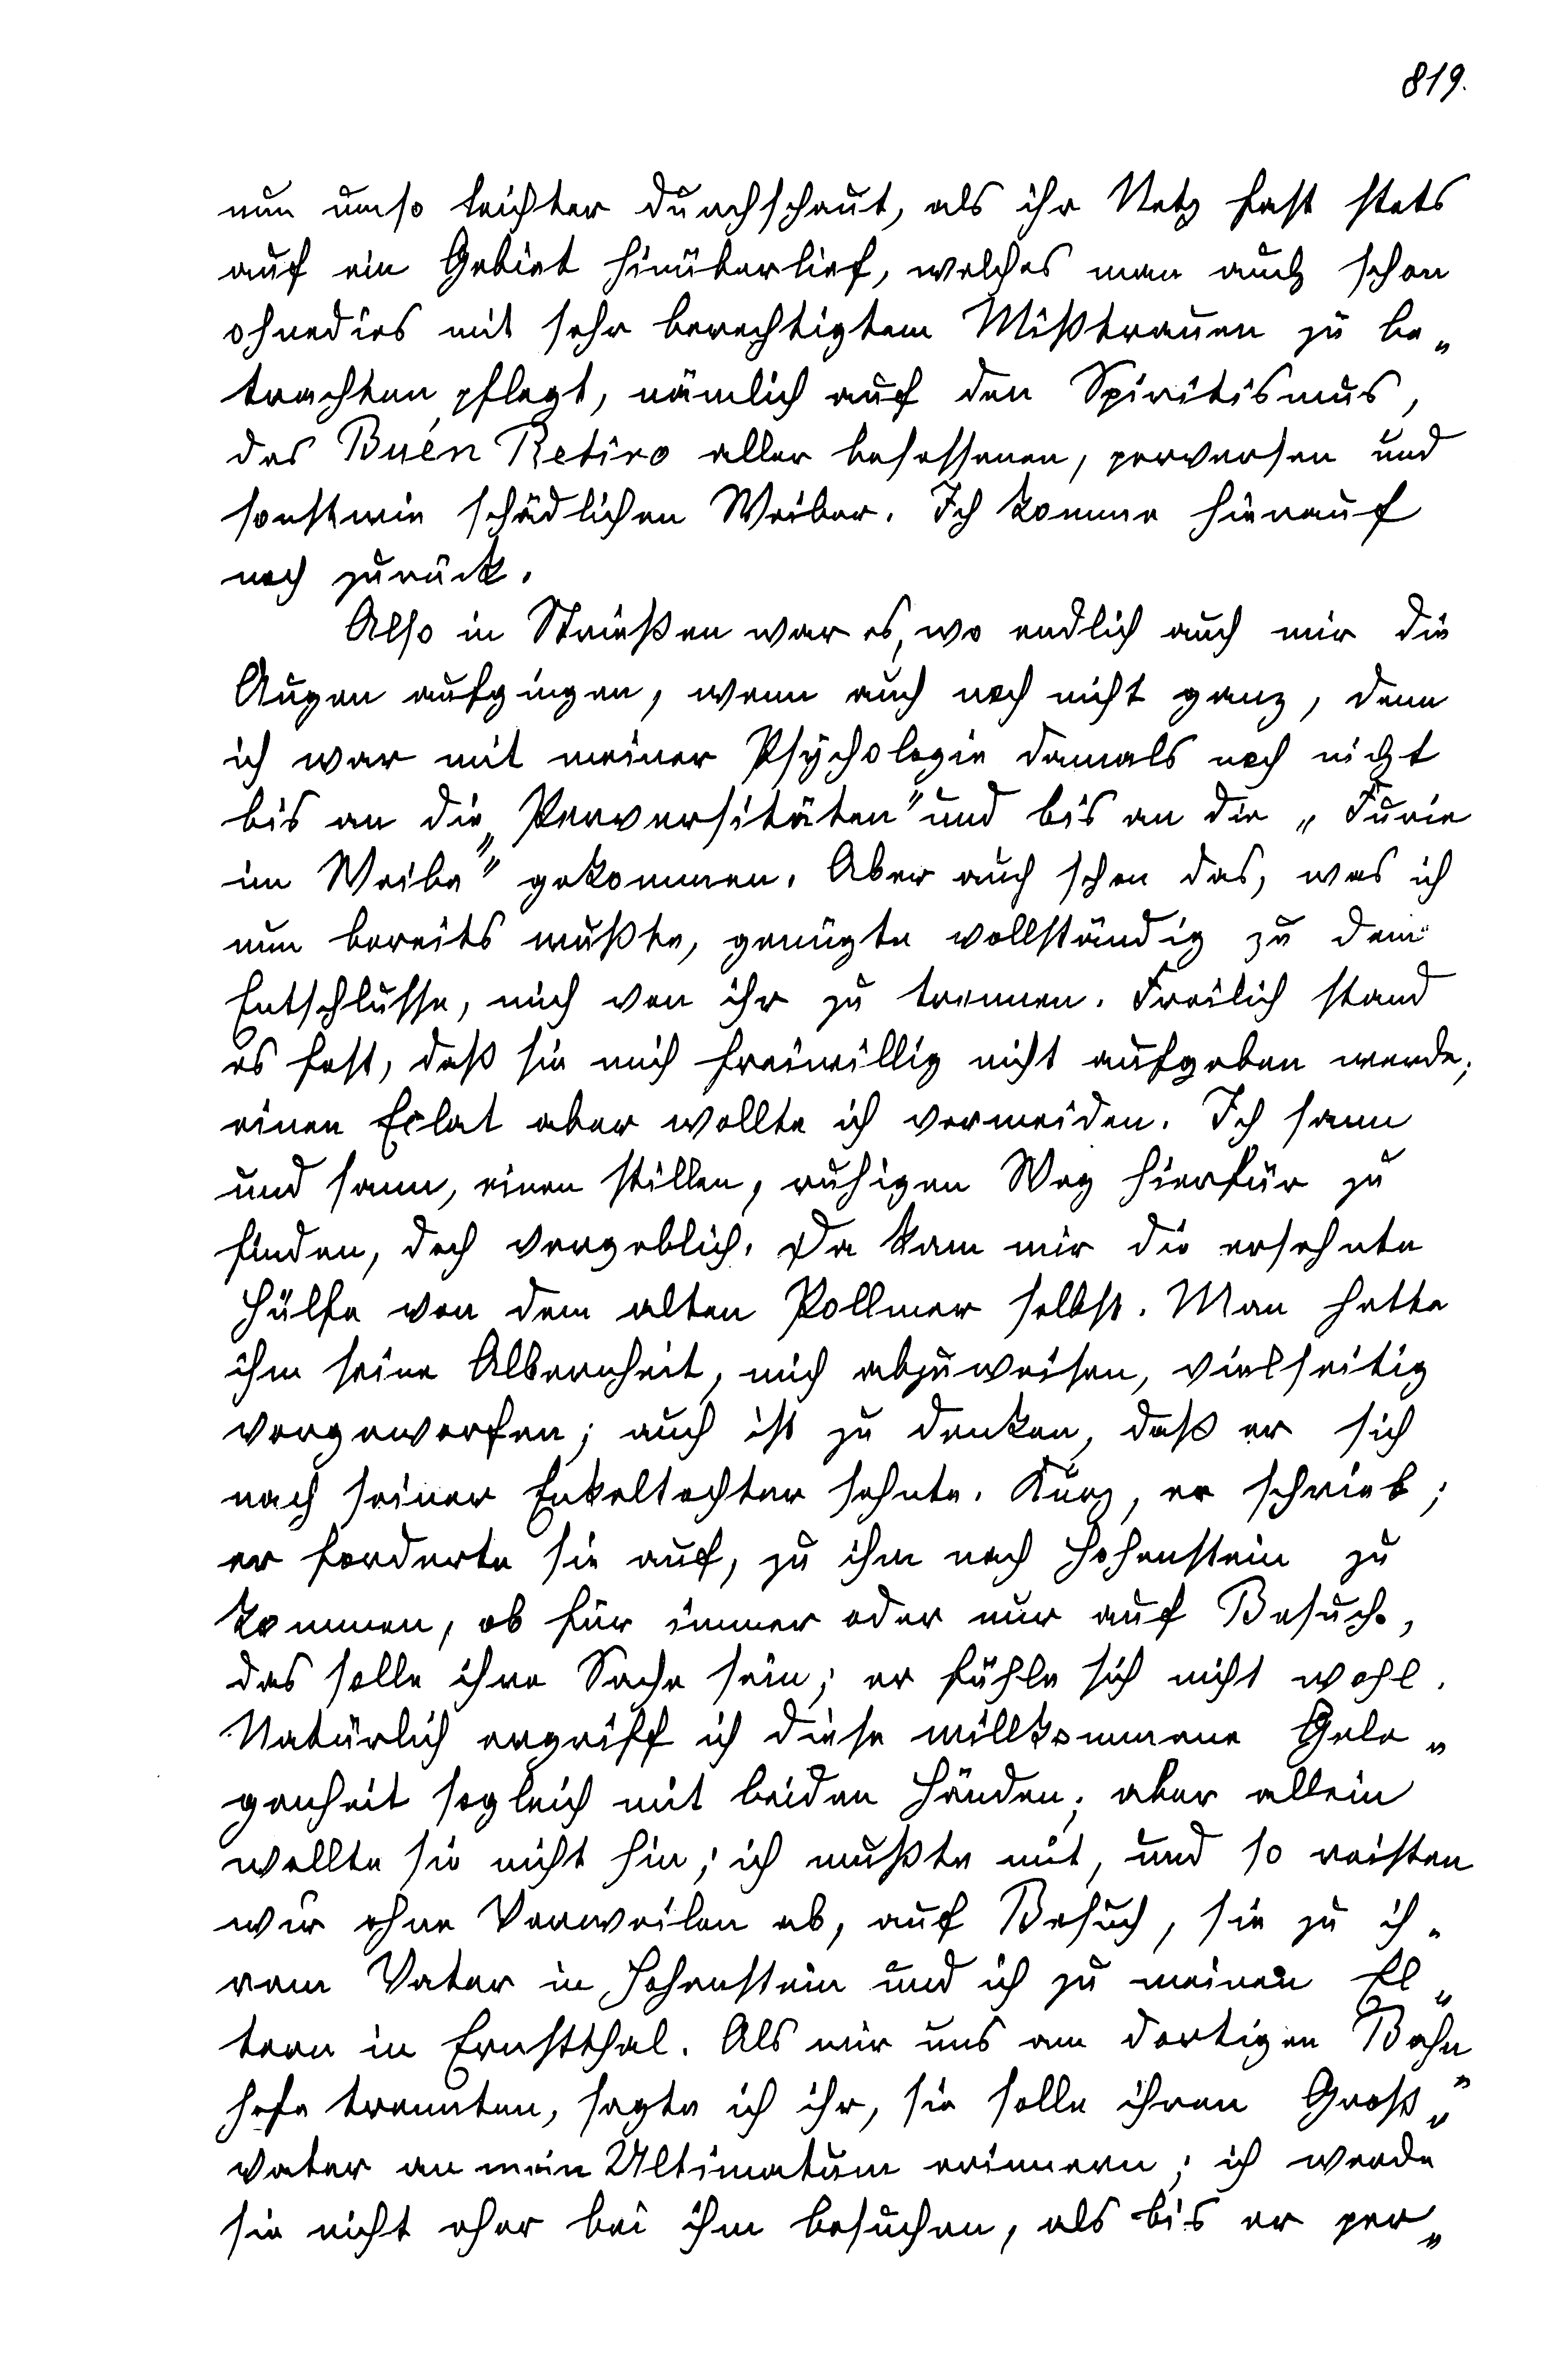 819.
nun umso leichter durchschaut, als ihr Netz fast stets
auf ein Gebiet hinüberlief, welches man auch schon
ohnedies mit sehr berechtigtem Mißtrauen zu be„
trachten pflegt, nämlich auf den Spiritismus,
das Buén Retiro aller besessenen, perversen und
sonstwie schädlichen Weiber. Ich komme hierauf
noch zurück.
Also in Strießen war es, wo endlich auch mir die
Augen aufgingen, wenn auch noch nicht ganz, denn
ich war mit meiner Psychologie damals noch nicht
bis an die „Perversitäten" und bis an die „Furie
im Weibe" gekommen. Aber auch schon das, was ich
nun bereits wußte, genügte vollständig zu dem
Entschlusse, mich von ihr zu trennen. Freilich stand
es fest, daß sie mich freiwillig nicht aufgeben werde;
einen Eclat aber wollte ich vermeiden. Ich sann
und sann, einen stillen, ruhigen Weg hierfür zu
finden, doch vergeblich. Da kam mir die ersehnte
Hülfe von dem alten Pollmer selbst. Man hatte
ihm seine Albernheit, mich abzuweisen, vielseitig
vorgeworfen; auch ist zu denken, daß er sich
nach seiner Enkeltochter sehnte. Kurz, er schrieb;
er forderte sie auf, zu ihm nach Hohenstein zu
kommen, ob für immer oder nur auf Besuch,
das solle ihre Sache sein; er fühle sich nicht wohl.
Natürlich ergriff ich diese willkommene Gele„
genheit sogleich mit beiden Händen; aber allein
wollte sie nicht hin; ich mußte mit, und so reisten
wir ohne Verweilen ab, auf Besuch, sie zu ih„
rem Vater in Hohenstein und ich zu meinen El„
tern in Ernstthal. Als wir uns am dortigen Bahn„
hofe trennten, sagte ich ihr, sie solle ihren Groß„
vater an mein Ultimatum erinnern; ich werde
sie nicht eher bei ihm besuchen, als bis er per„